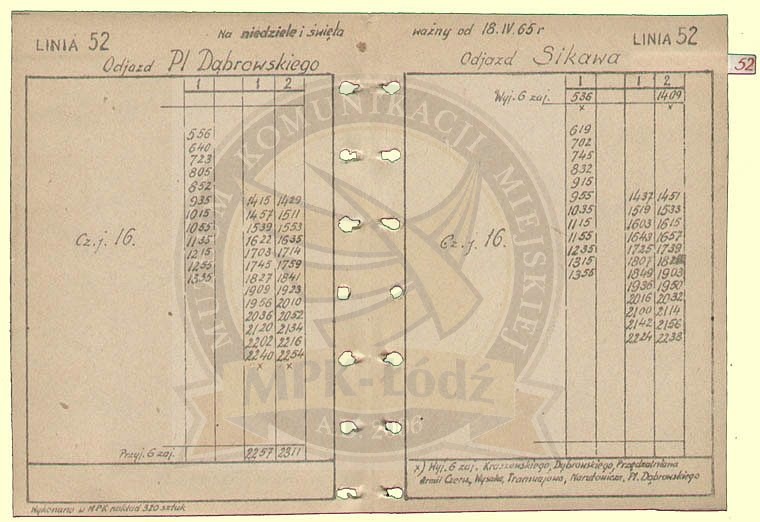 LINIA 52
Na niedziele i święta
ważny od 18.IV.65r
LINIA 52
Odjazd Pl Dąbrowskiego
Odjazd Sikawa
52
1 1 2
1 1 2
Wyj. G zaj. 536 1409
x x
556
640
723
805
852
935 1415 1429
1015 1457 1511
1055 1539 1553
1135 1622 1635
1215 1703 1714
1255 1745 1759
1335 1827 1841
1909 1923
1956 2010
2036 2052
2120 2134
2202 2216
2240 2254
x x
Cz.j. 16.
Przyj. G zaj. 2257 2311
619
702
745
832
915
955 1437 1451
1035 1519 1533
1115 1603 1615
1155 1643 1657
1235 1725 1739
1315 1807
1355 1849 1903
1936 1950
2016 2032
2100 2114
2142 2156
2224 2238
Cz.j. 16.
x) Wyj. G zaj. Kraszewskiego, Dąbrowskiego, Przędzalniana
Armii Czerw, Wysoka, Tramwajowa, Narutowicza, Pl. Dąbrowskiego
Wykonano w MPK nakład 320 sztuk
MUZEUM KOMUNIKACJI MIEJSKIEJ
MPK-Łódź